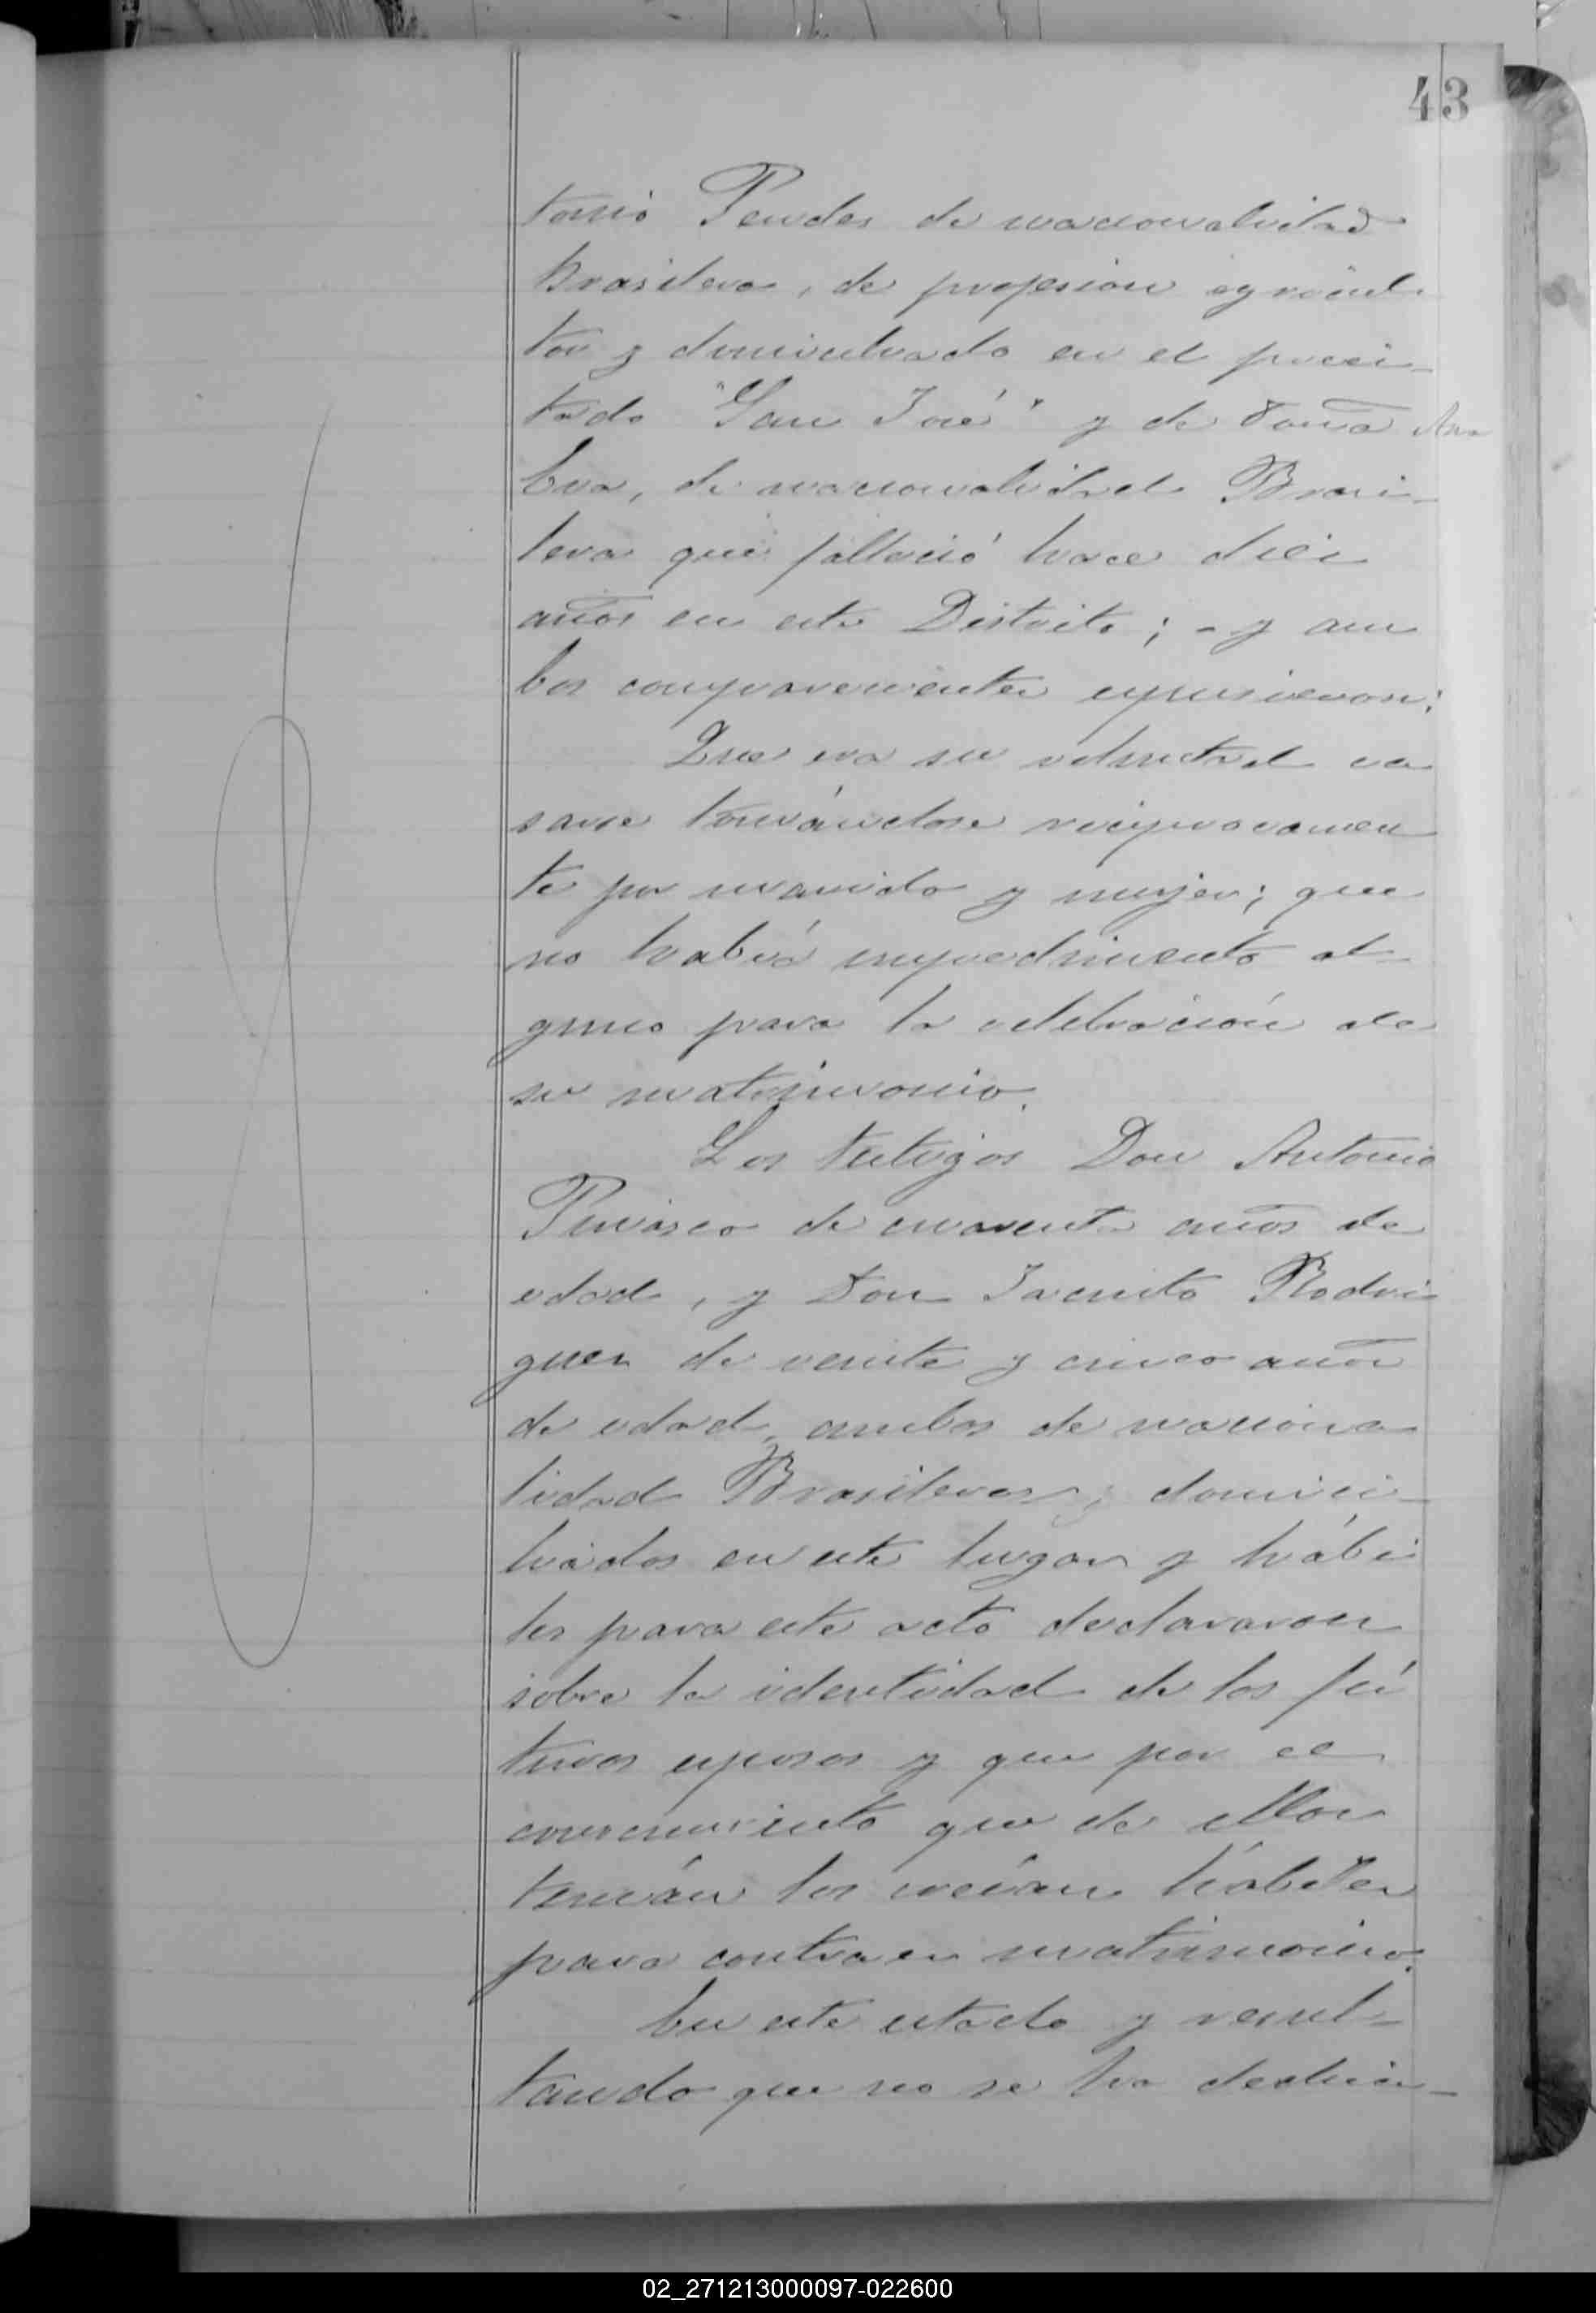 43
tonio Pendes de nacionalidad
Brasilera, de profesion agricul
tor y domiciliado en el preci-
tado "San José" y de doña Ana
Eva, de nacionalidad Brasi-
lera que falleció hace diez
años en este Distrito; - y am
bos comparecientes expusieron:
Que era su voluntad ca
sarse tomándose reciprocamen
te por marido y mujer; que
no había impedimento al-
guno para la celebración de
su matrimonio.
Los testigos Don Antonio
de cuarenta años de
edad, y Don Jacinto Rodri
guez de veinte y cinco años
de edad, ambos de naciona
lidad Brasileros, domici-
liados en este lugar y hábi
les para este acto declararon
sobre la identidad de los fú
turos esposos y que por el
conocimiento que de ellos
tenían los creían hábiles
para contraer matrimonio.
En este estado y resul-
tando que no se ha deduci-
02_271213000097-022600